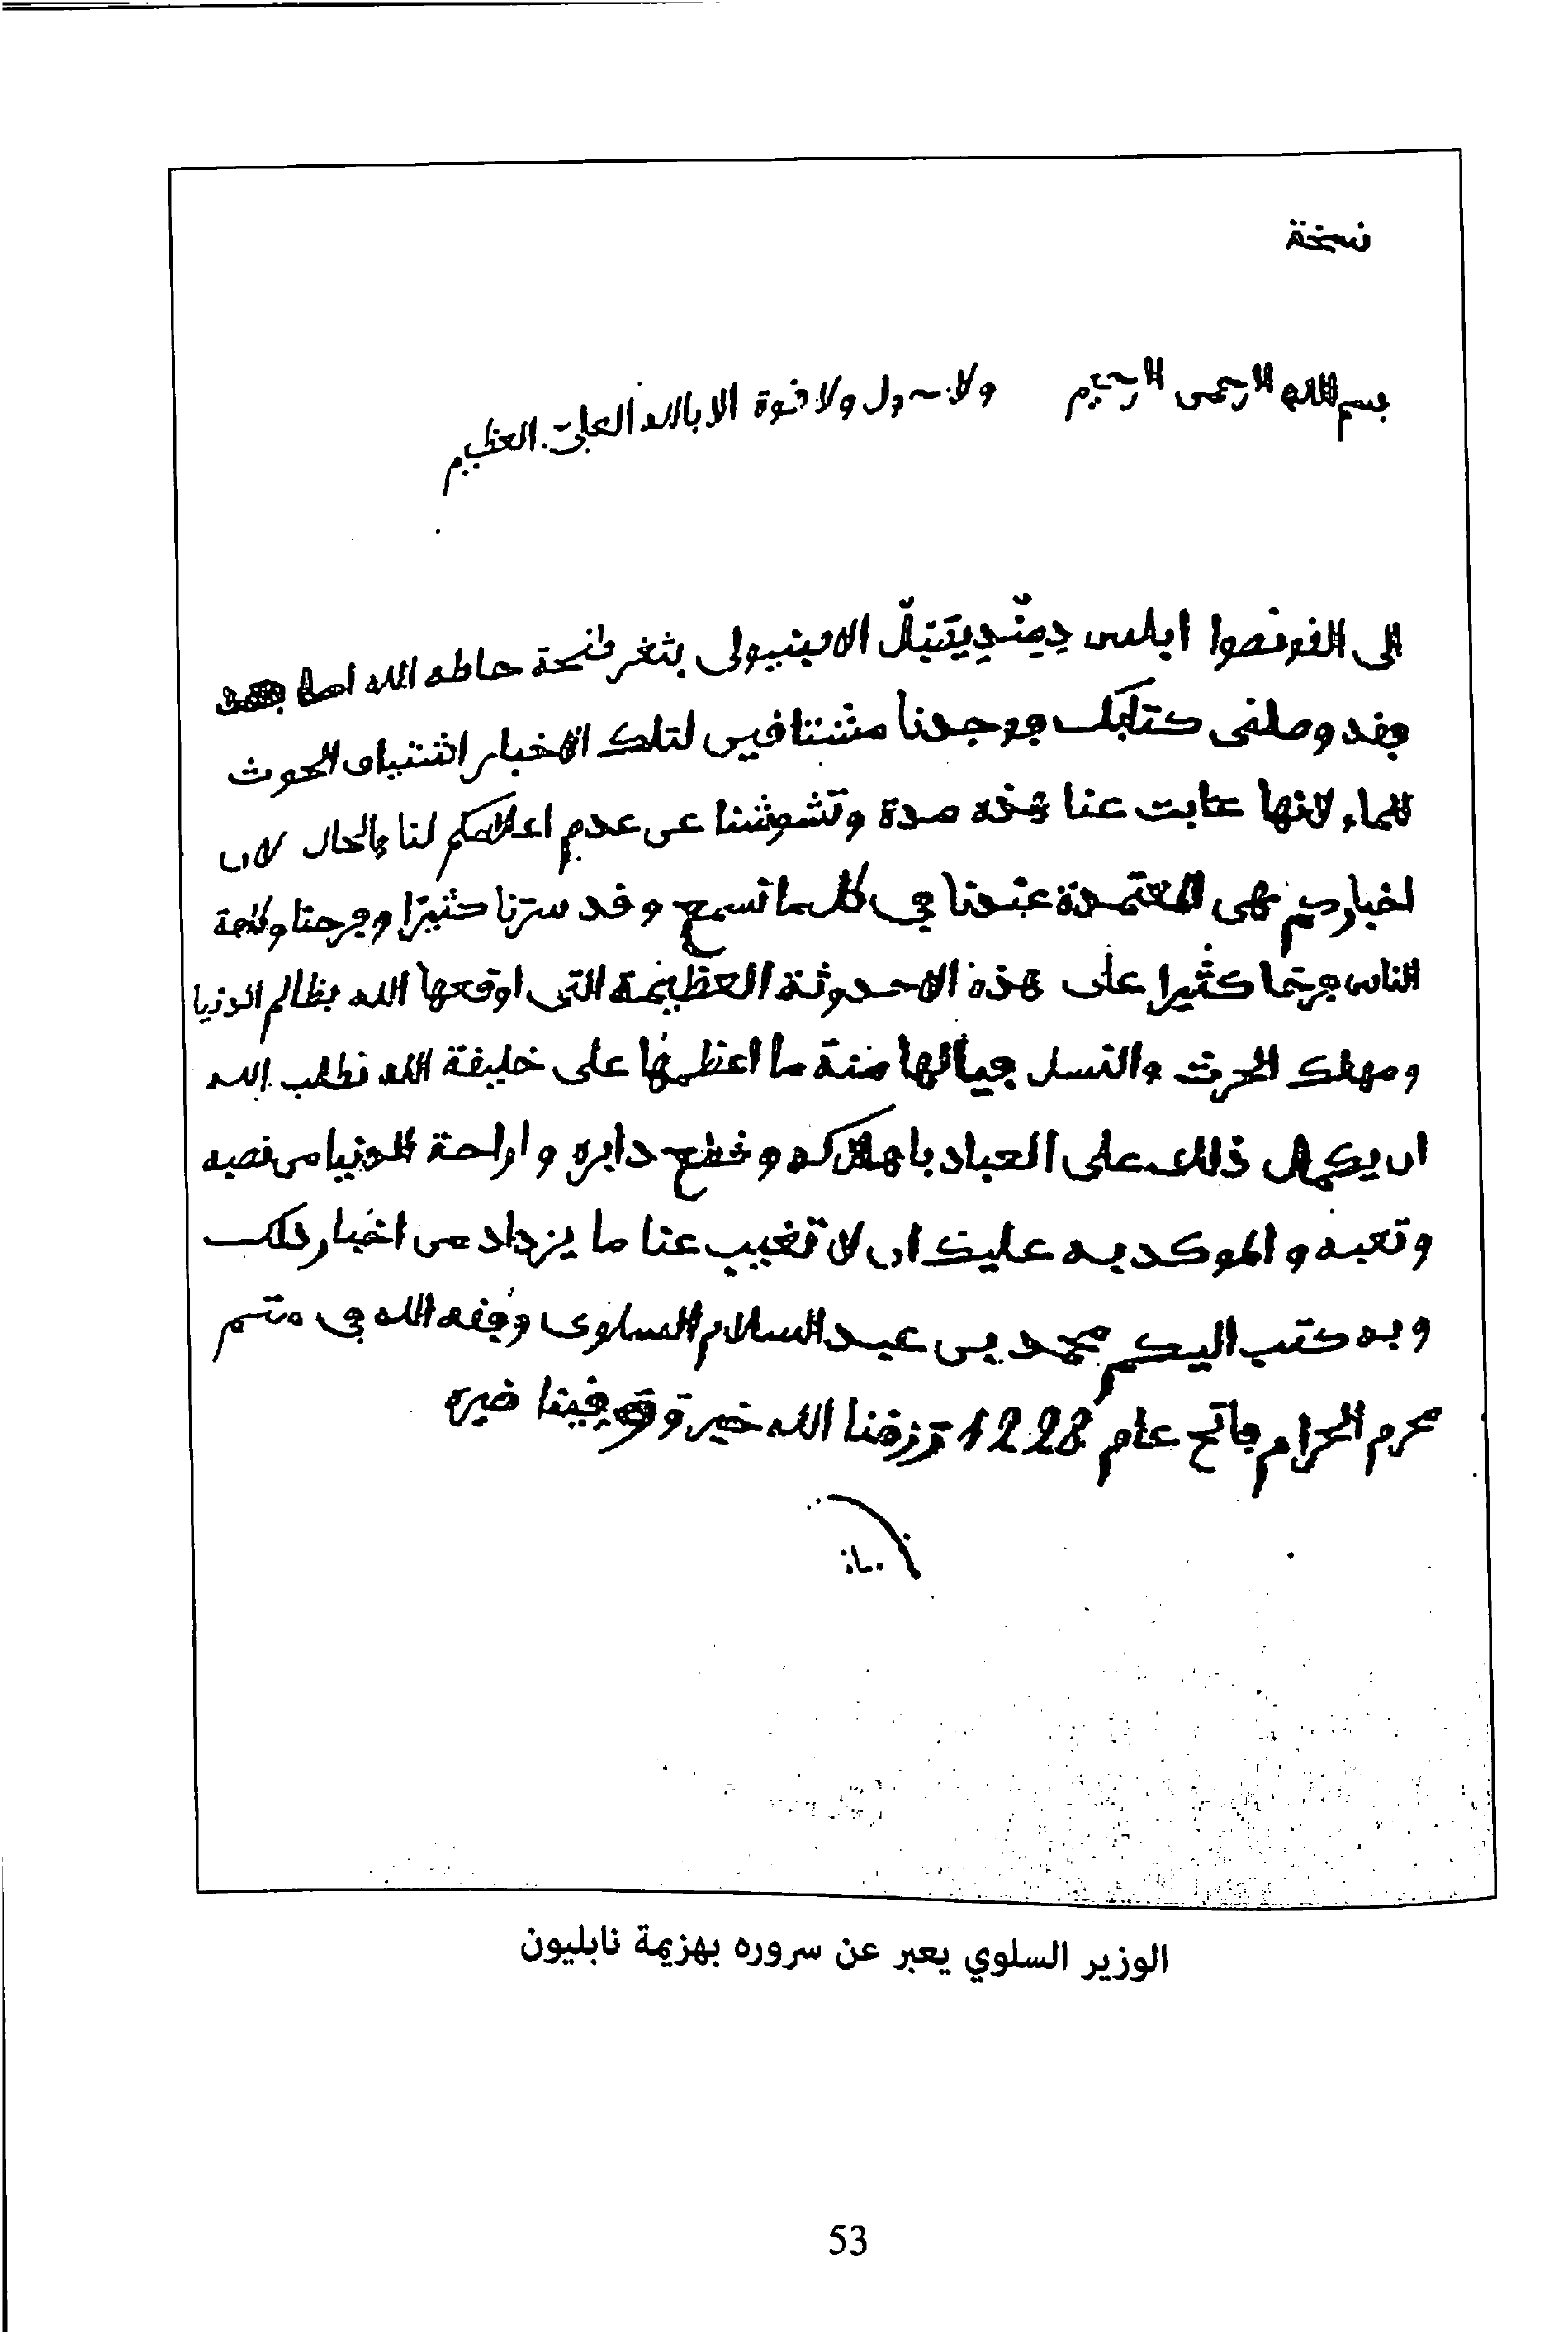 نسخة
بسم الله الرحمن الرحيم ولا حول ولا قوة الا بالله العلي العظيم
الى القونصوا ابلس الاصبنيولى بثغر طنجة حاطه الله اما بعد
فقد وصلنى كتابك ووجدنا مشتاقين لتلك الاخبار اشتياق الحوت
للماء لانها غابت عنا هذه مدة وتشوشنا عن عدم اعلامكم لنا بالحال لان
اخباركم هى المعتمدة عندنا في كل ما نسمع وقد سرنا كثيرا وفرحنا وكافة
الناس فرحا كثيرا على هذه الاحدوثة العظيمة التى اوقعها الله بظالم الدنيا
ومهلك الحرث والنسل فيالها منة ما اعظمها على خليقة الله نطلب الله
ان يكمل ذلك على العباد باهلاكه وقطع دابره واراحة الدنيا من نصبه
وتعبه والموكد به عليك ان لا تغيب عنا ما يزداد من اخبار ذلك
وبه كتب اليكم محمد بن عبد السلام السلوى وفقه الله في متم
محرم الحرام فاتح عام 1228 رزقنا الله خيره ووقينا ضيره
الوزير السلوي يعبر عن سروره بهزيمة نابليون
53